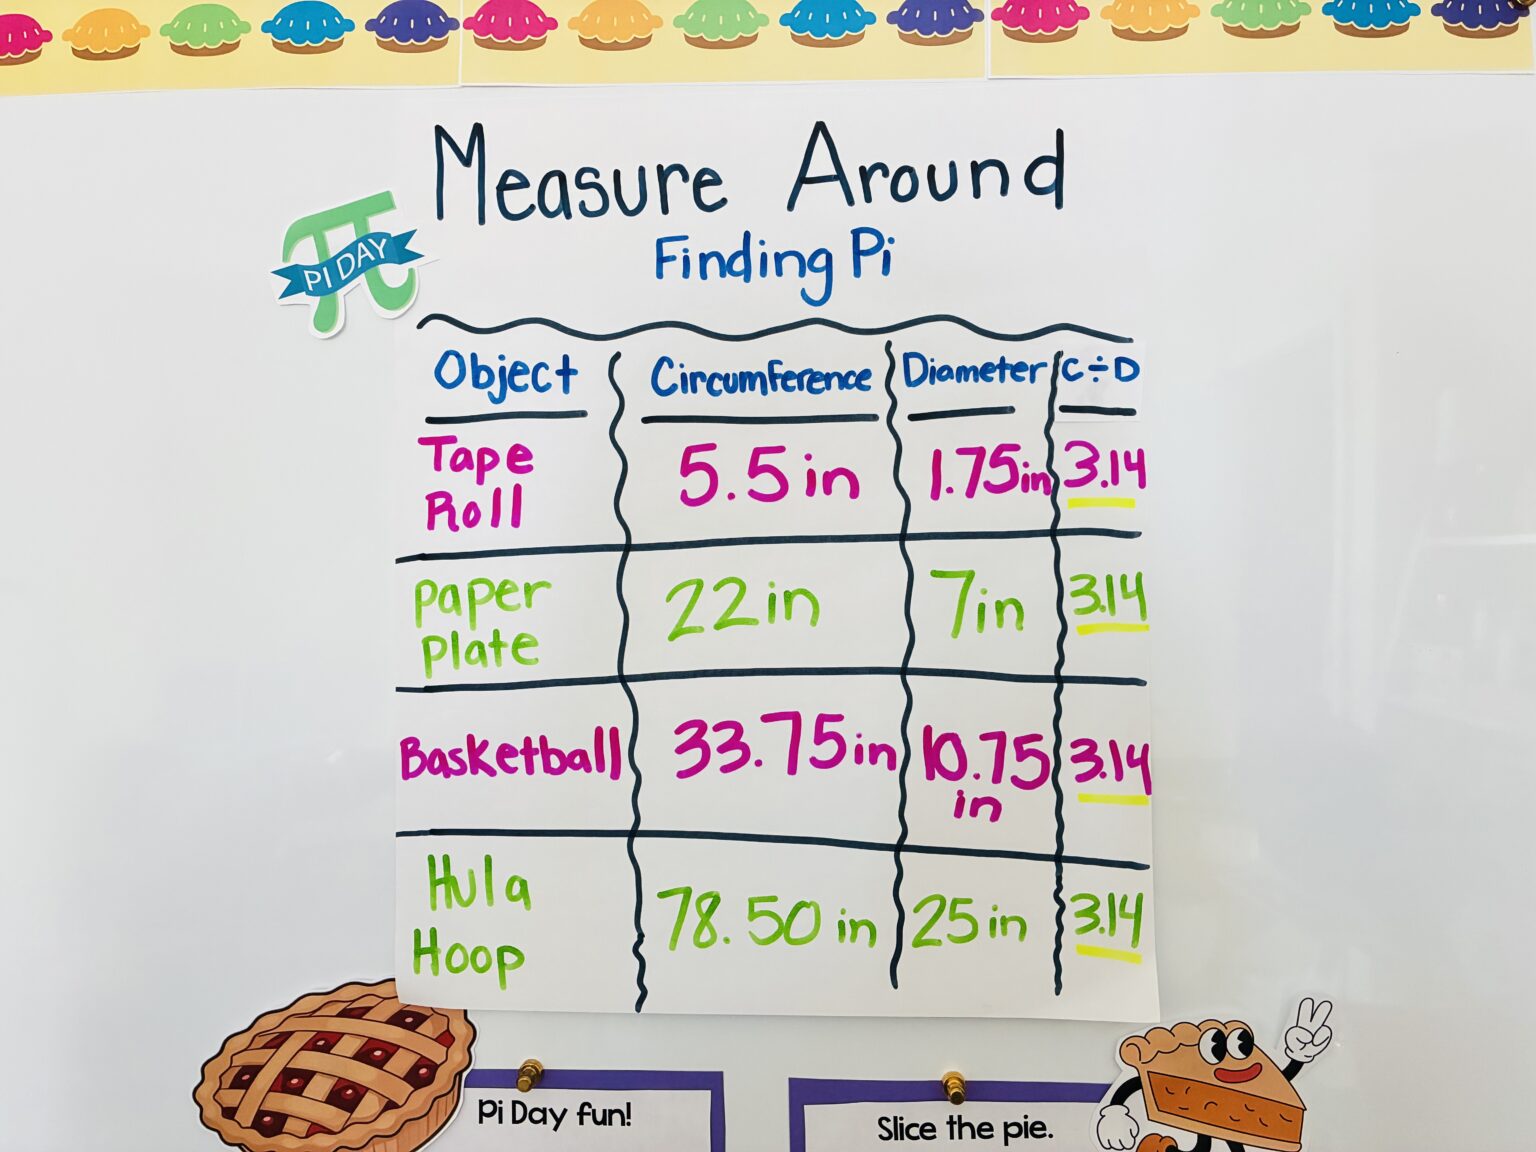 Measure Around
PI DAY
Finding Pi
Object Circumference Diameter C÷D
Tape Roll 5.5 in 1.75in 3.14
Paper Plate 22in 7in 3.14
Basketball 33.75in 10.75 in 3.14
Hula Hoop 78.50 in 25in 3.14
Pi Day fun!
Slice the pie.